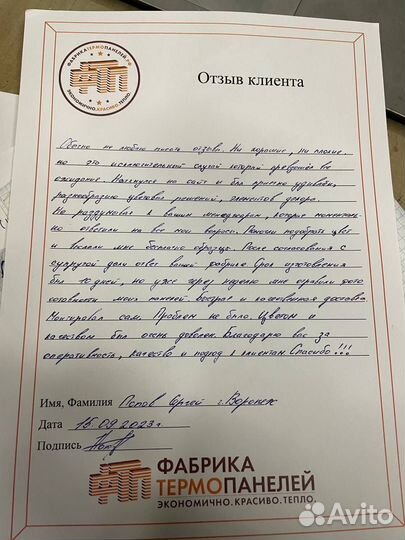 ФАБРИКАТЕРМОПАНЕЛЕЙ.РФ
ФТП
ЭКОНОМИЧНО.КРАСИВО.ТЕПЛО.
Отзыв клиента
Обычно не люблю писать отзывы. Ни хорошие, ни плохие.
но это исключительный случай который превзошёл все
ожидание. Наткнулся на сайт и был приятно удивлён,
разнообразию цветовых решений, элементов декора.
Не раздумывая к вашим менеджерам, которые моментально
но ответили на все мои вопросы. Помогли подобрать цвет
и выслали мне бесплатно образцы. После согласования с
супругой дали ответ вашей фабрике. Срок изготовления
был 10 дней, но уже через неделю мне отправили фото
готовности моих панелей возврат и качественная доставка
Монтировал сам. Проблем не было. Цветом и
качеством был очень доволен. Благодарю вас за
оперативность, качество и подход к клиентам Спасибо!!!
Имя, Фамилия Попов Сергей г. Воронеж
Дата 15.09.2023г.
Подпись
ФТП
ФАБРИКА
ТЕРМОПАНЕЛЕЙ
ЭКОНОМИЧНО.КРАСИВО.ТЕПЛО.
Avito